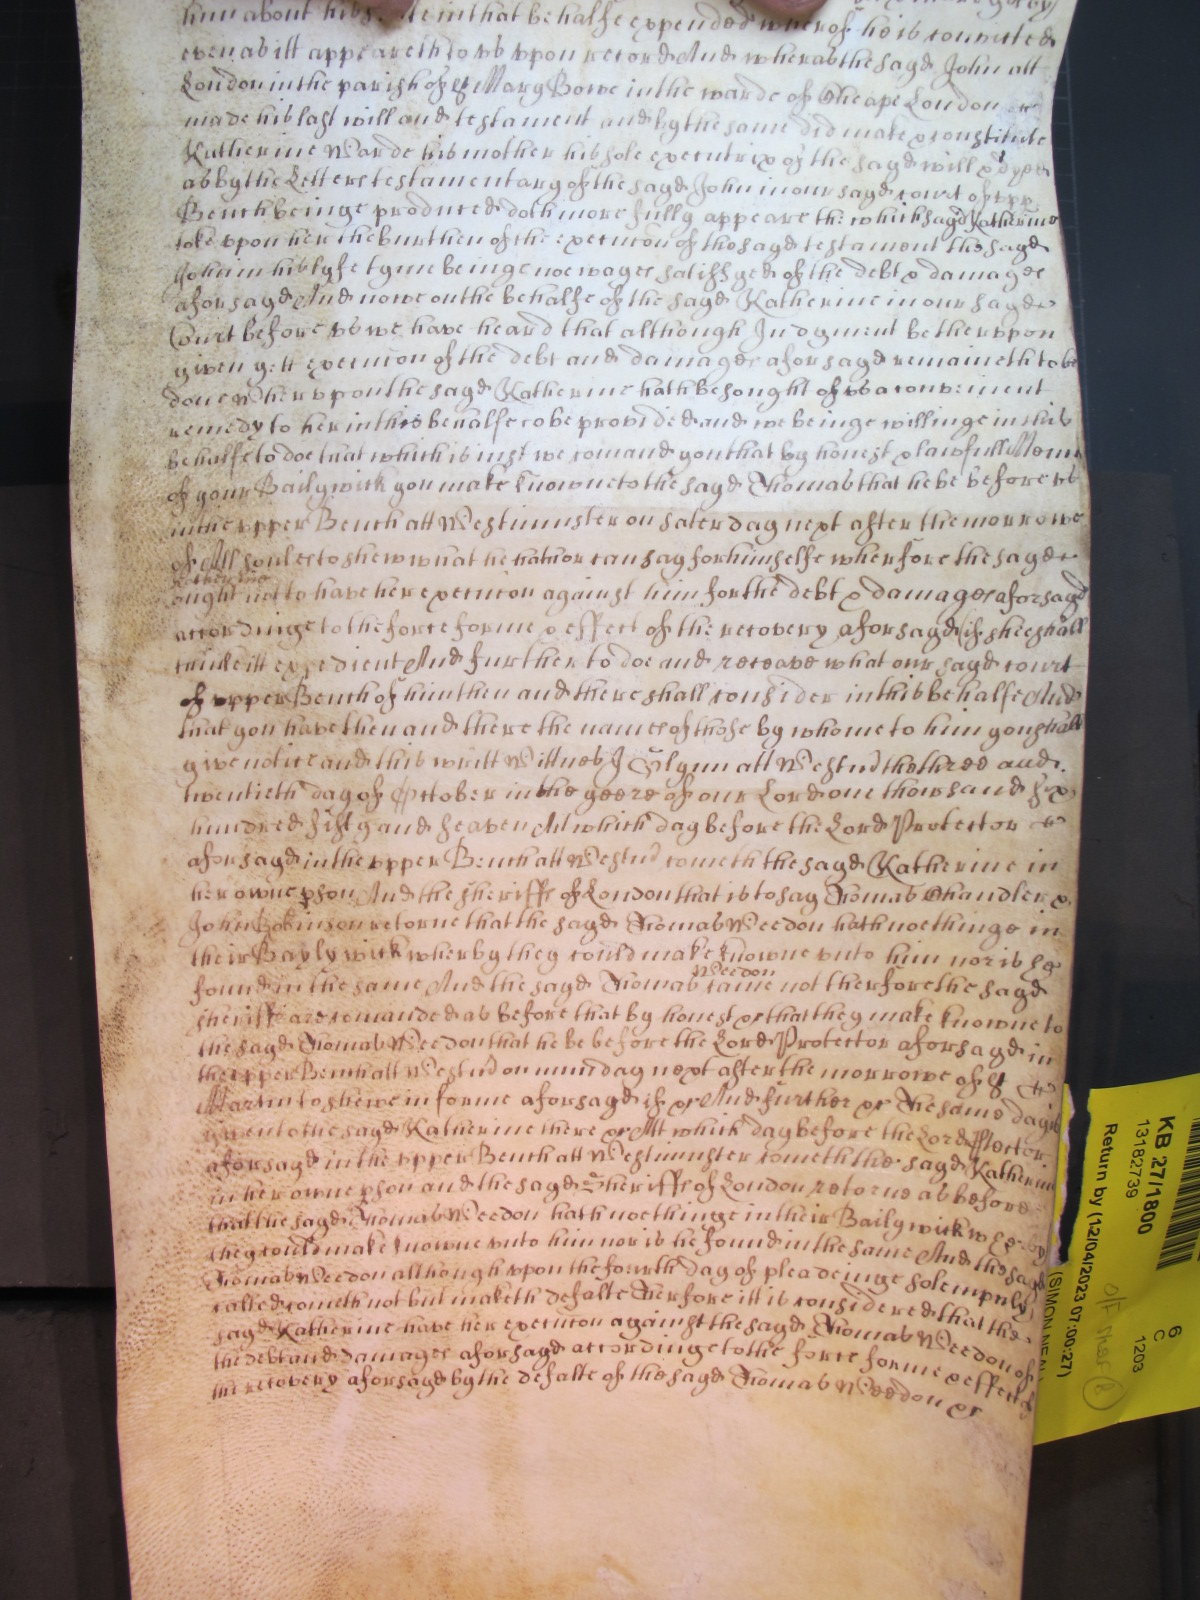 him about his suite in that behalfe expended wherof he is convicted
even as itt appeareth to us upon record And wheras the sayd John att
London in the parish of St Mary Bowe in the warde of Cheape London
made his last will and testament and by the same did make & constitute
Katherine Warde his mother his sole executrix of the sayd will & dyed
as by the Letters testamentary of the sayd John in our sayd court of upp
Bench beinge produced doth more fully appeare the which sayd Katherine
toke upon her the burthen of the execucon of the sayd testament the sayd
John in his lyfe tyme beinge noe wayes satisfyed of the debt & damages
aforsayd And nowe on the behalfe of the sayd Katherine in our sayd
Court before us we have heard that although Judgment be therupon
given yett execucon of the debt and damages aforsayd remaineth to be
done Wherupon the sayd Katherine hath besought of us a convenient
remedy to her in this behalfe to be provided and we beinge willinge in this
behalfe to doe that which is just we comand you that by honest & lawfull Menn
of your Bailywick you make knowne to the sayd Thomas that he be before us
in the upper Bench att Westminster on Saterday next after the morrowe
of All soules to shew what he hath or can say for himselfe wherfore the sayd
Katherine
ought not to have her execucon against him for the debt & damages aforsayd
accordinge to the force forme & effect of the recovery aforsayd if shee shall
thinke itt expedient And further to doe and receave what our sayd court
of upper Bench of him then and there shall consider in this behalfe And
that you have then and there the names of those by whome to him you shall
give notice and this writt Wittnes J Glynn att Westmr the three and
twentieth day of October in the yeere of our Lord one thowsand six
hundred fifty and seaven At which day before the Lord Protector
aforsayd in the upper Bench att Westmr cometh the sayd Katherine in
her owne pson And the sheriffs of London that is to say Thomas Chandler &
John Robinson retorne that the sayd Thomas Weedon hath noethinge in
their Baylywick wherby they could make knowne unto him nor is he
found in the same And the sayd Thomas came not therfore the sayd
Weedon
sheriffs are comanded as before that by honest &c that they make knowne to
the sayd Thomas Weedon that he be before the Lord Protector aforsayd in
the upper Bench att Westmr on munday next after the morrowe of St
Martin to shewe in forme aforsayd if &c And further &c The same day is
given to the sayd Katherine there &c At which day before the Lord Ptector
aforsayd in the upper Bench att Westminster cometh the sayd Katherine
in her owne pson and the sayd Sheriffs of London retorne as before
that the sayd Thomas Weedon hath noethinge in their Bailywick wherby
they could make knowne unto him nor is he found in the same And the sayd
Thomas Weedon although upon the fourth day of pleadeinge solempnly
called cometh not but maketh defalte Therfore itt is considered that the
sayd Katherine have her execucon against the sayd Thomas Weedon of
the debt and damages aforsayd accordinge to the force forme & effect of
the recovery aforsayd by the defalte of the sayd Thomas Weedon &c
KB 27/1800
13182739
Return by (12/04/2023 07:00:27)
6
C
1203